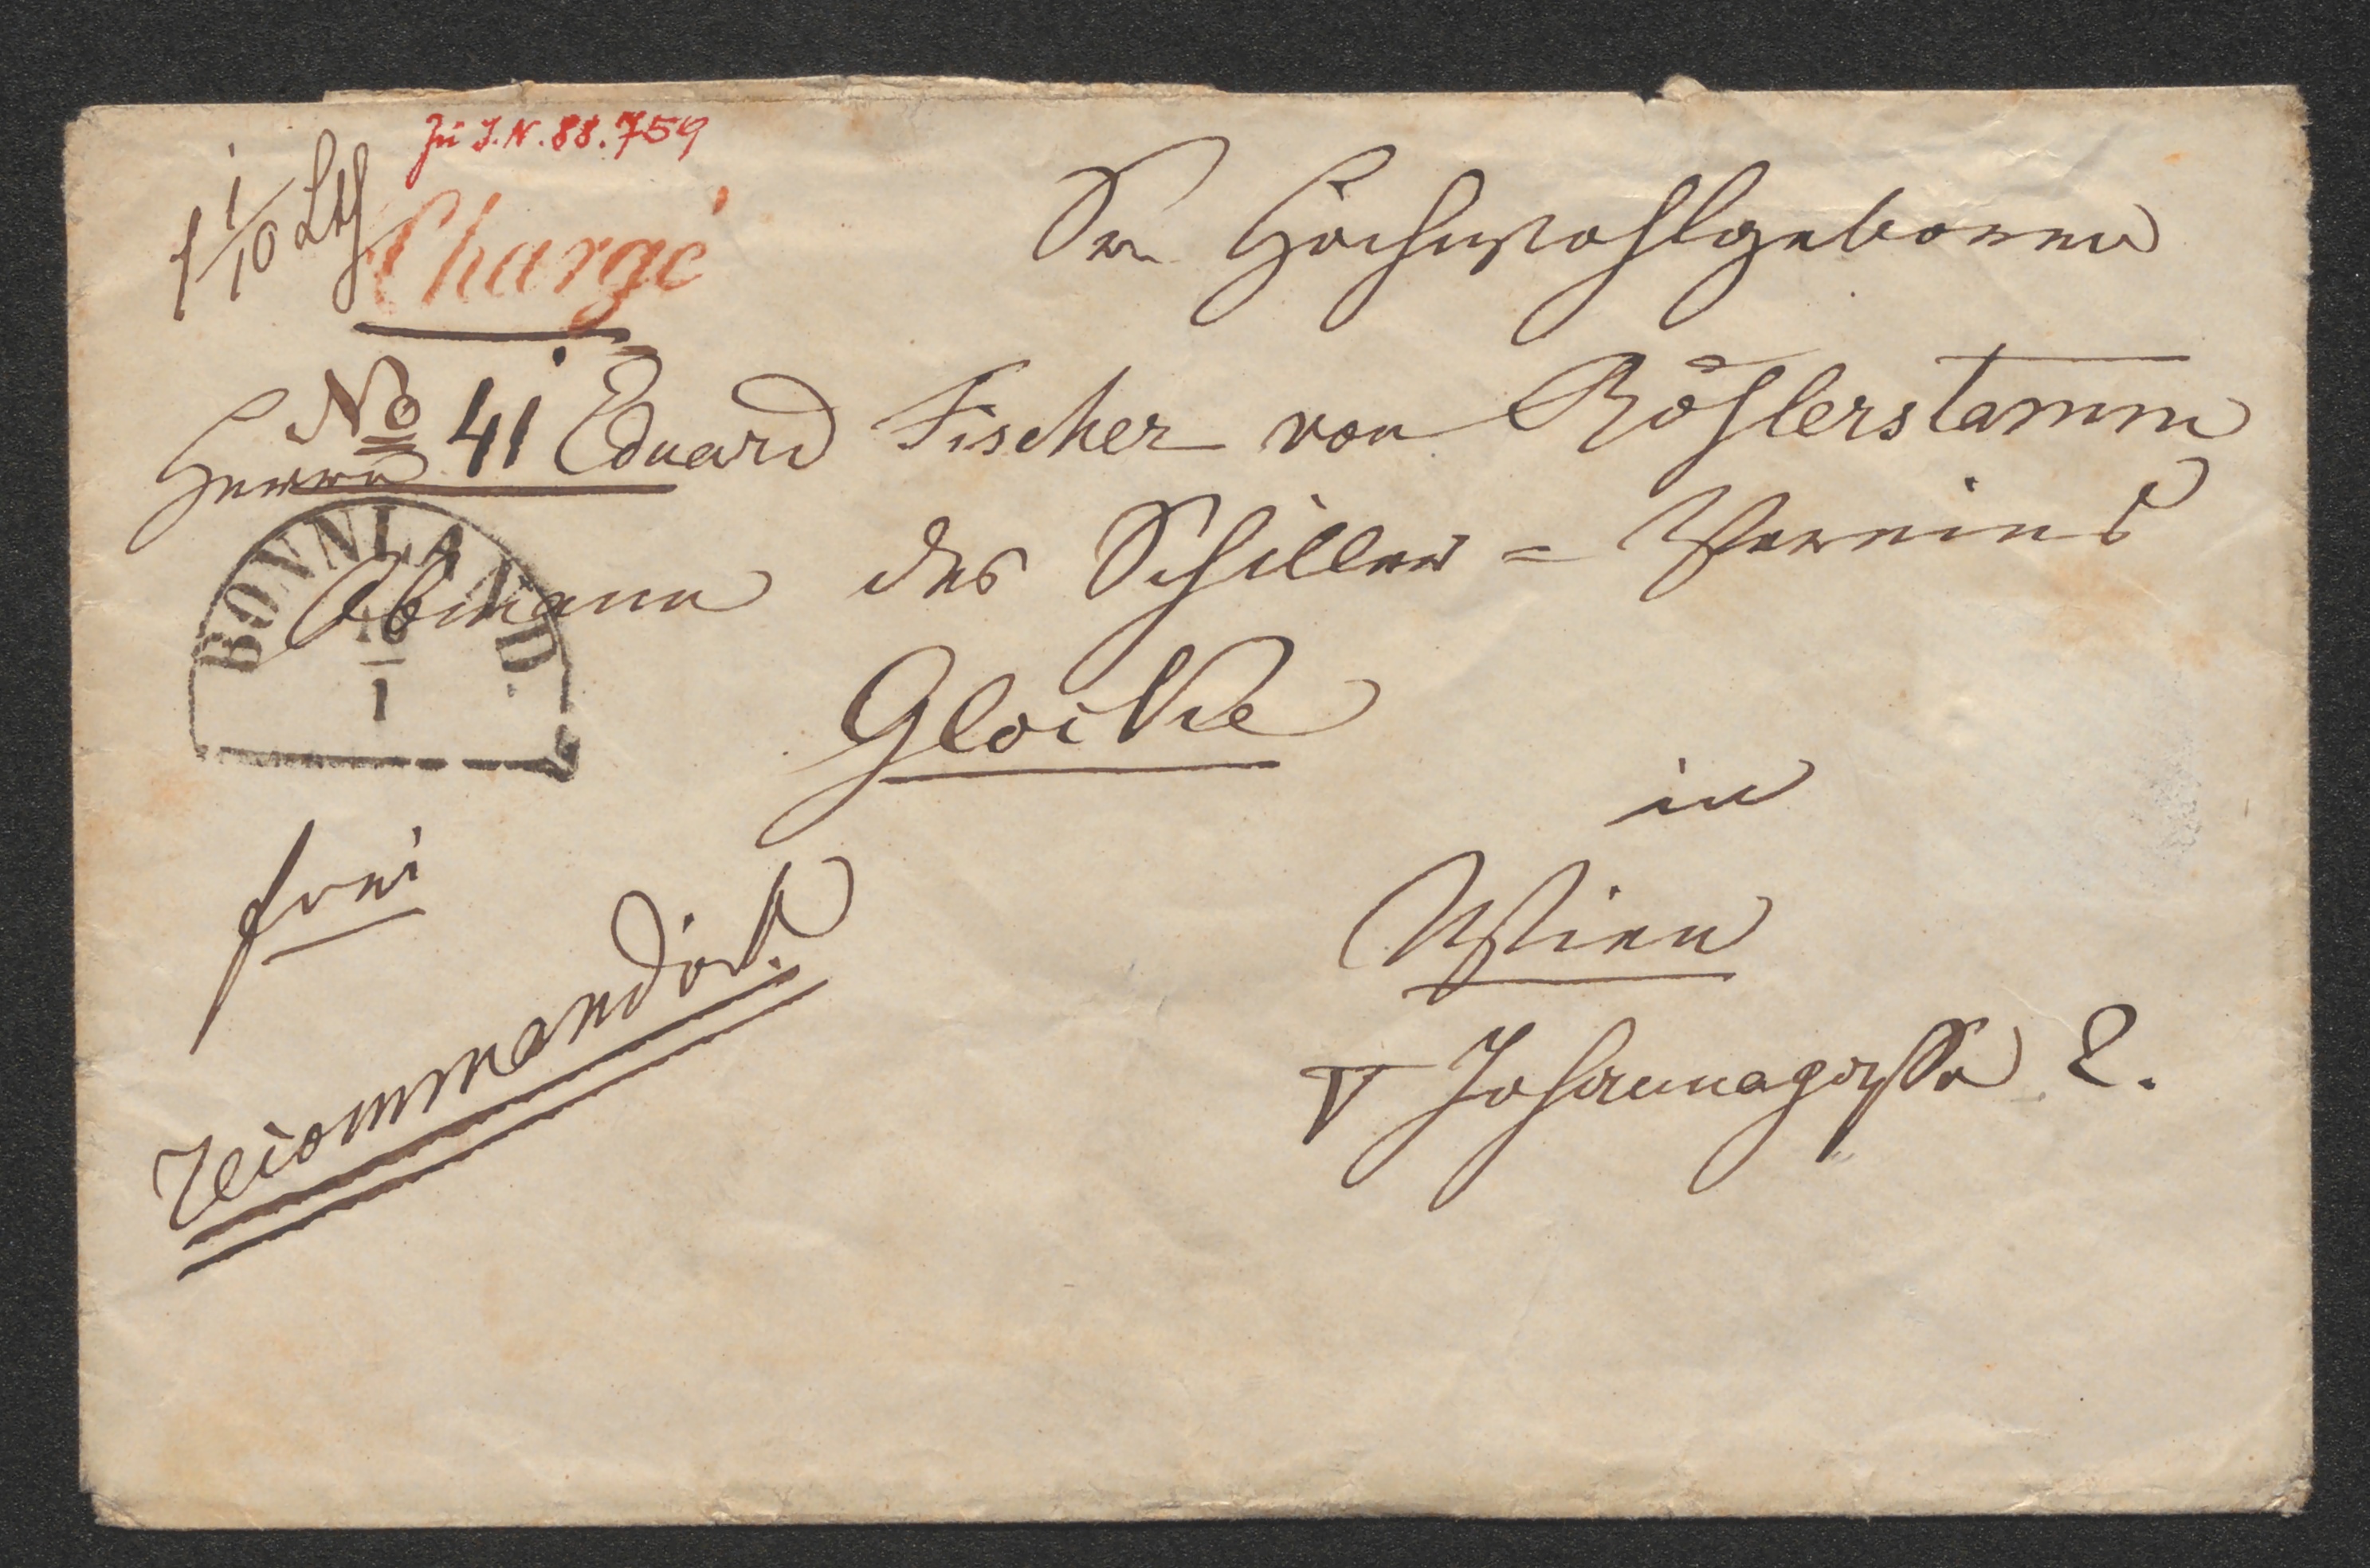 Zu I.N. 88.759
1 1/10 Lth
Chargé
Sr. Hochwohlgeboren
No 41
Herrn Eduard Fischer von Röhlerstamm
Obmann des Schiller=Vereins
Glocke
BONNLAND.
1
in
frei
Wien
Recommandirt.
Johannagasse 2.